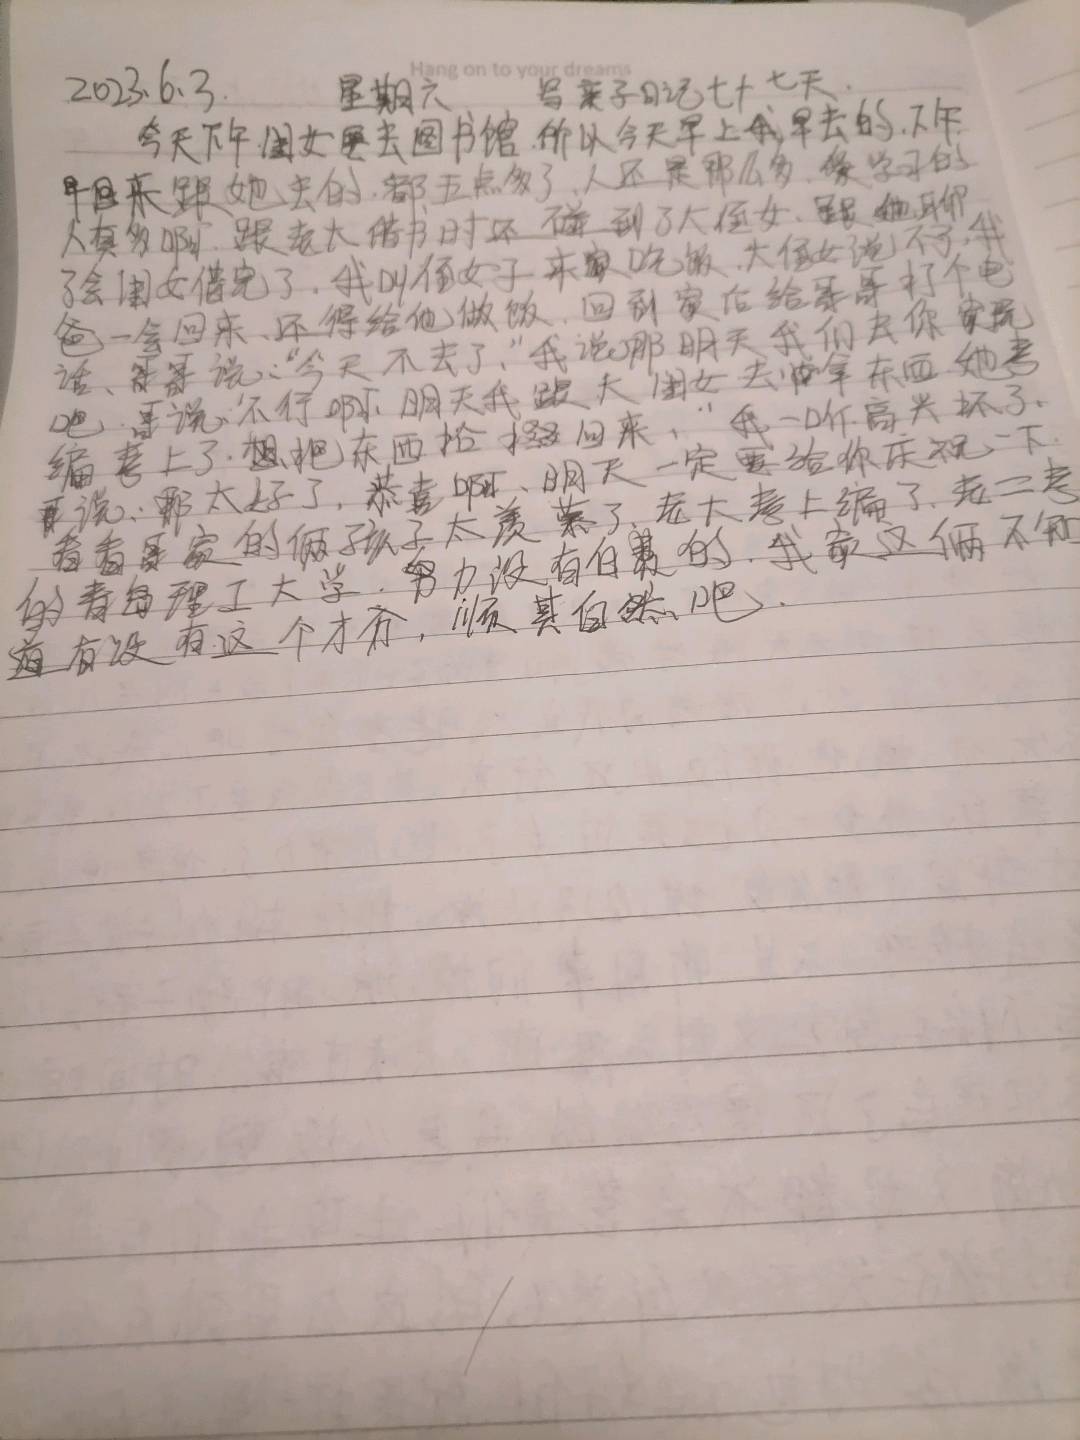 Hang on to your dreams
2023.6.3. 星期六 写亲子日记七十七天.
今天下午闺女要去图书馆.所以今天早上我早去的.下午
早回来跟她去的.都五点多了、人还是那么多.像学习的
人真多啊.跟老大借书时还碰到了大侄女.跟她聊
了会闺女借完了.我叫侄女子来家吃饭.大侄女说不了.我
爸一会回来、还得给他做饭.回到家后给哥哥打个电
话、哥哥说:“今天不去了.”我说那明天我们去你家玩
吧.哥说“不行啊.明天我跟大闺女去拿东西.她考
编考上了.想把东西拾掇回来.”我一听高兴坏了.
说:那太好了,恭喜啊、明天一定要给你庆祝一下.
看看哥家的俩孩子太羡慕了.老大考上编了.老二考
的青岛理工大学.努力没有白费的.我家这俩不知
道有没有这个才否,顺其自然吧.